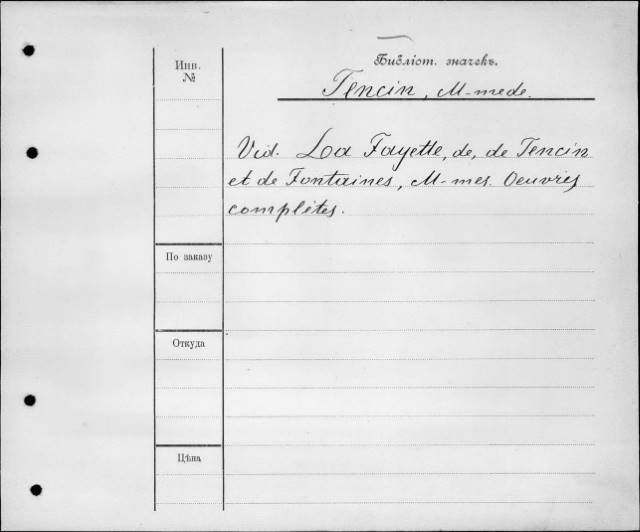 Инв.
№
Библіот. значекъ.
Tencin, M-me de.
Vid. La Fayette, de, de Tencin
et de Fontaines, M-mes. Oeuvres
complètes.
По заказу
Откуда
Цѣна